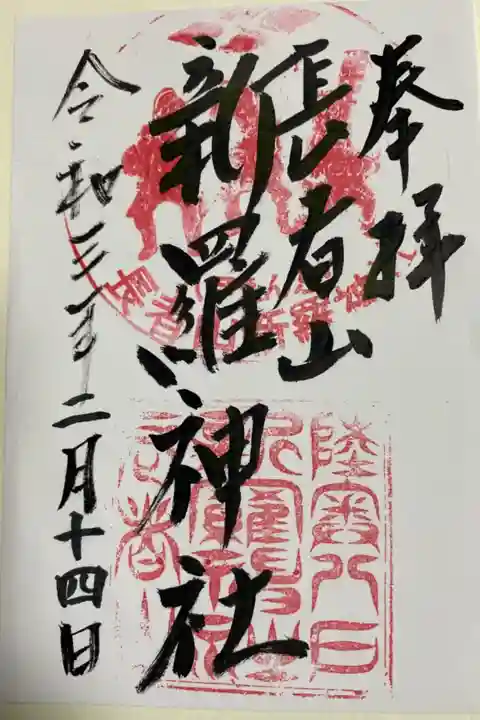 奉拝
長者山
新羅神社
令和三年二月十四日
陸奥八戸